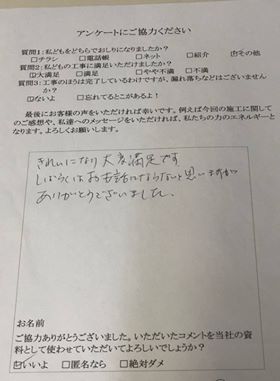 アンケートにご協力ください
質問1:私どもをどちらでおしりになりましたか?
□チラシ □電話帳 □ネット □紹介 ☑その他
質問2:私どもの工事に満足いただけましたか?
☑大満足 □満足 □やや不満 □不満
質問3:工事のほうは完了しているわけですが、漏れ落ちなどはございません
か?
☑ないよ □忘れてるとこがあるよ!
最後にお客様の声をいただければ幸いです。例えば今回の施工に関して
のご感想や、私達へのメッセージをいただければ、私たちの力のエネルギーと
なります。よろしくお願いします。
きれいになり大変満足です
しばらくはお世話にならないと思いますが
ありがとうございました。
お名前
ご協力ありがとうございました。いただいたコメントを当社の資
料として使わせていただいてよろしいでしょうか?
☑いいよ □匿名なら □絶対ダメ